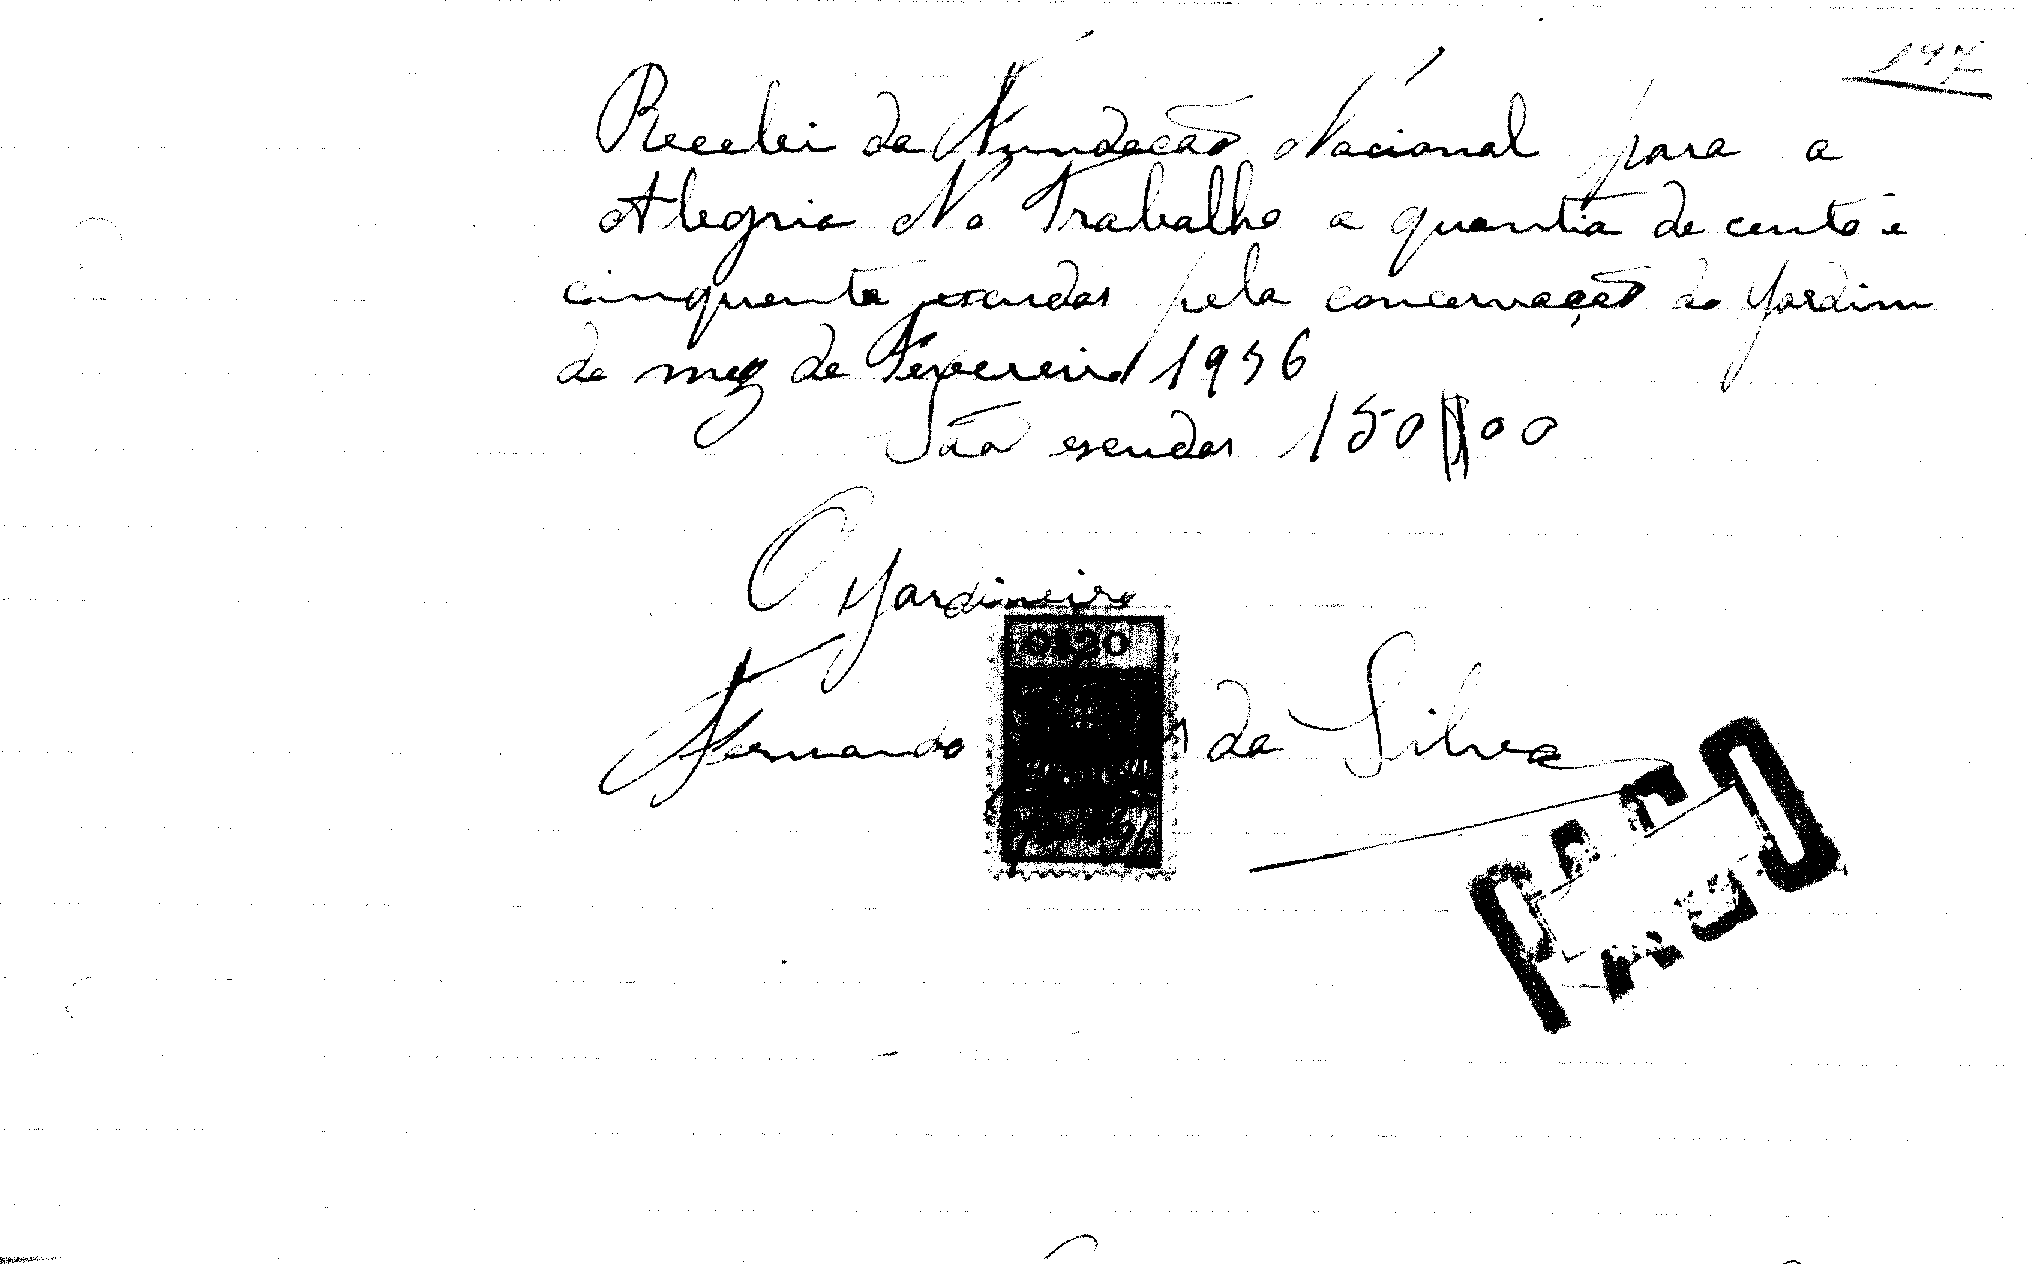 197
Recebi da Fundação Nacional para a
Alegria No Trabalho a quantia de cento e
cinquenta escudos pela concervação do Jardim
do mez de Fevereiro 1936
São escudos 150$00
O Jardineiro
0$20
Fernando da Silva
PAGO